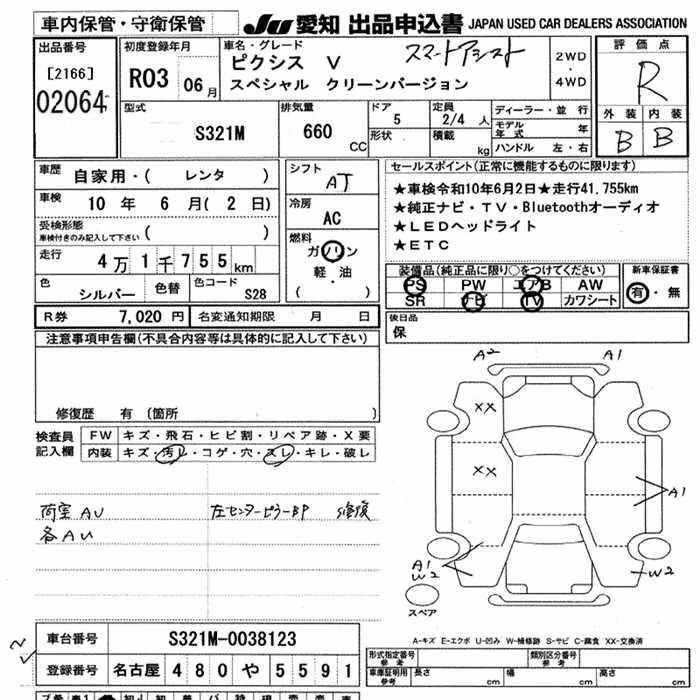 車内保管・守衛保管
JU 愛知 出品申込書 JAPAN USED CAR DEALERS ASSOCIATION
出品番号
[2166]
02064
初度登録年月
R03 06月
車名・グレード
ピクシス V スマートアシスト
スペシャル クリーンバージョン
2WD
・
4WD
評価点
R
外装 内装
B B
型式
S321M
排気量
660 CC
ドア 5
形状
定員 2/4 人
積載 kg
ディーラー・並行
モデル年式 年
ハンドル 左・右
車歴 自家用・( レンタ )
車検 10 年 6 月( 2 日)
受検形態
車検付きのみ記入して下さい ( )
走行 4万1千755km
色 シルバー 色替 色コード S28
シフト
AT
冷房
AC
燃料
ガソリン
軽・油
( )
セールスポイント(正常に機能するものに限ります)
★車検令和10年6月2日★走行41.755km
★純正ナビ・TV・Bluetoothオーディオ
★LEDヘッドライト
★ETC
装備品(純正品に限り○をつけてください)
PS PW エアB AW
SR ナビ TV カワシート
新車保証書
有・無
R券 7,020 円 名変通知期限 月 日
後日品
保
注意事項申告欄(不具合内容等は具体的に記入して下さい)
修復歴 有 (箇所 )
検査員
記入欄
FW キズ・飛石・ヒビ割・リペア跡・X要
内装 キズ・汚レ・コゲ・穴・スレ・キレ・破レ
荷室AU 左センターピラーBP 修復
各AU
A2 A1
XX
XX
A1
A1
W2
W2
スペア
A-キズ E-エクボ U-凹み W-補修跡 S-サビ C-腐食 XX-交換済
車台番号 S321M-0038123
登録番号 名古屋 480 や 5591
形式指定番号
参考
類別区分番号
参考
車庫証明用
参考
長さ cm 幅 cm 高さ cm